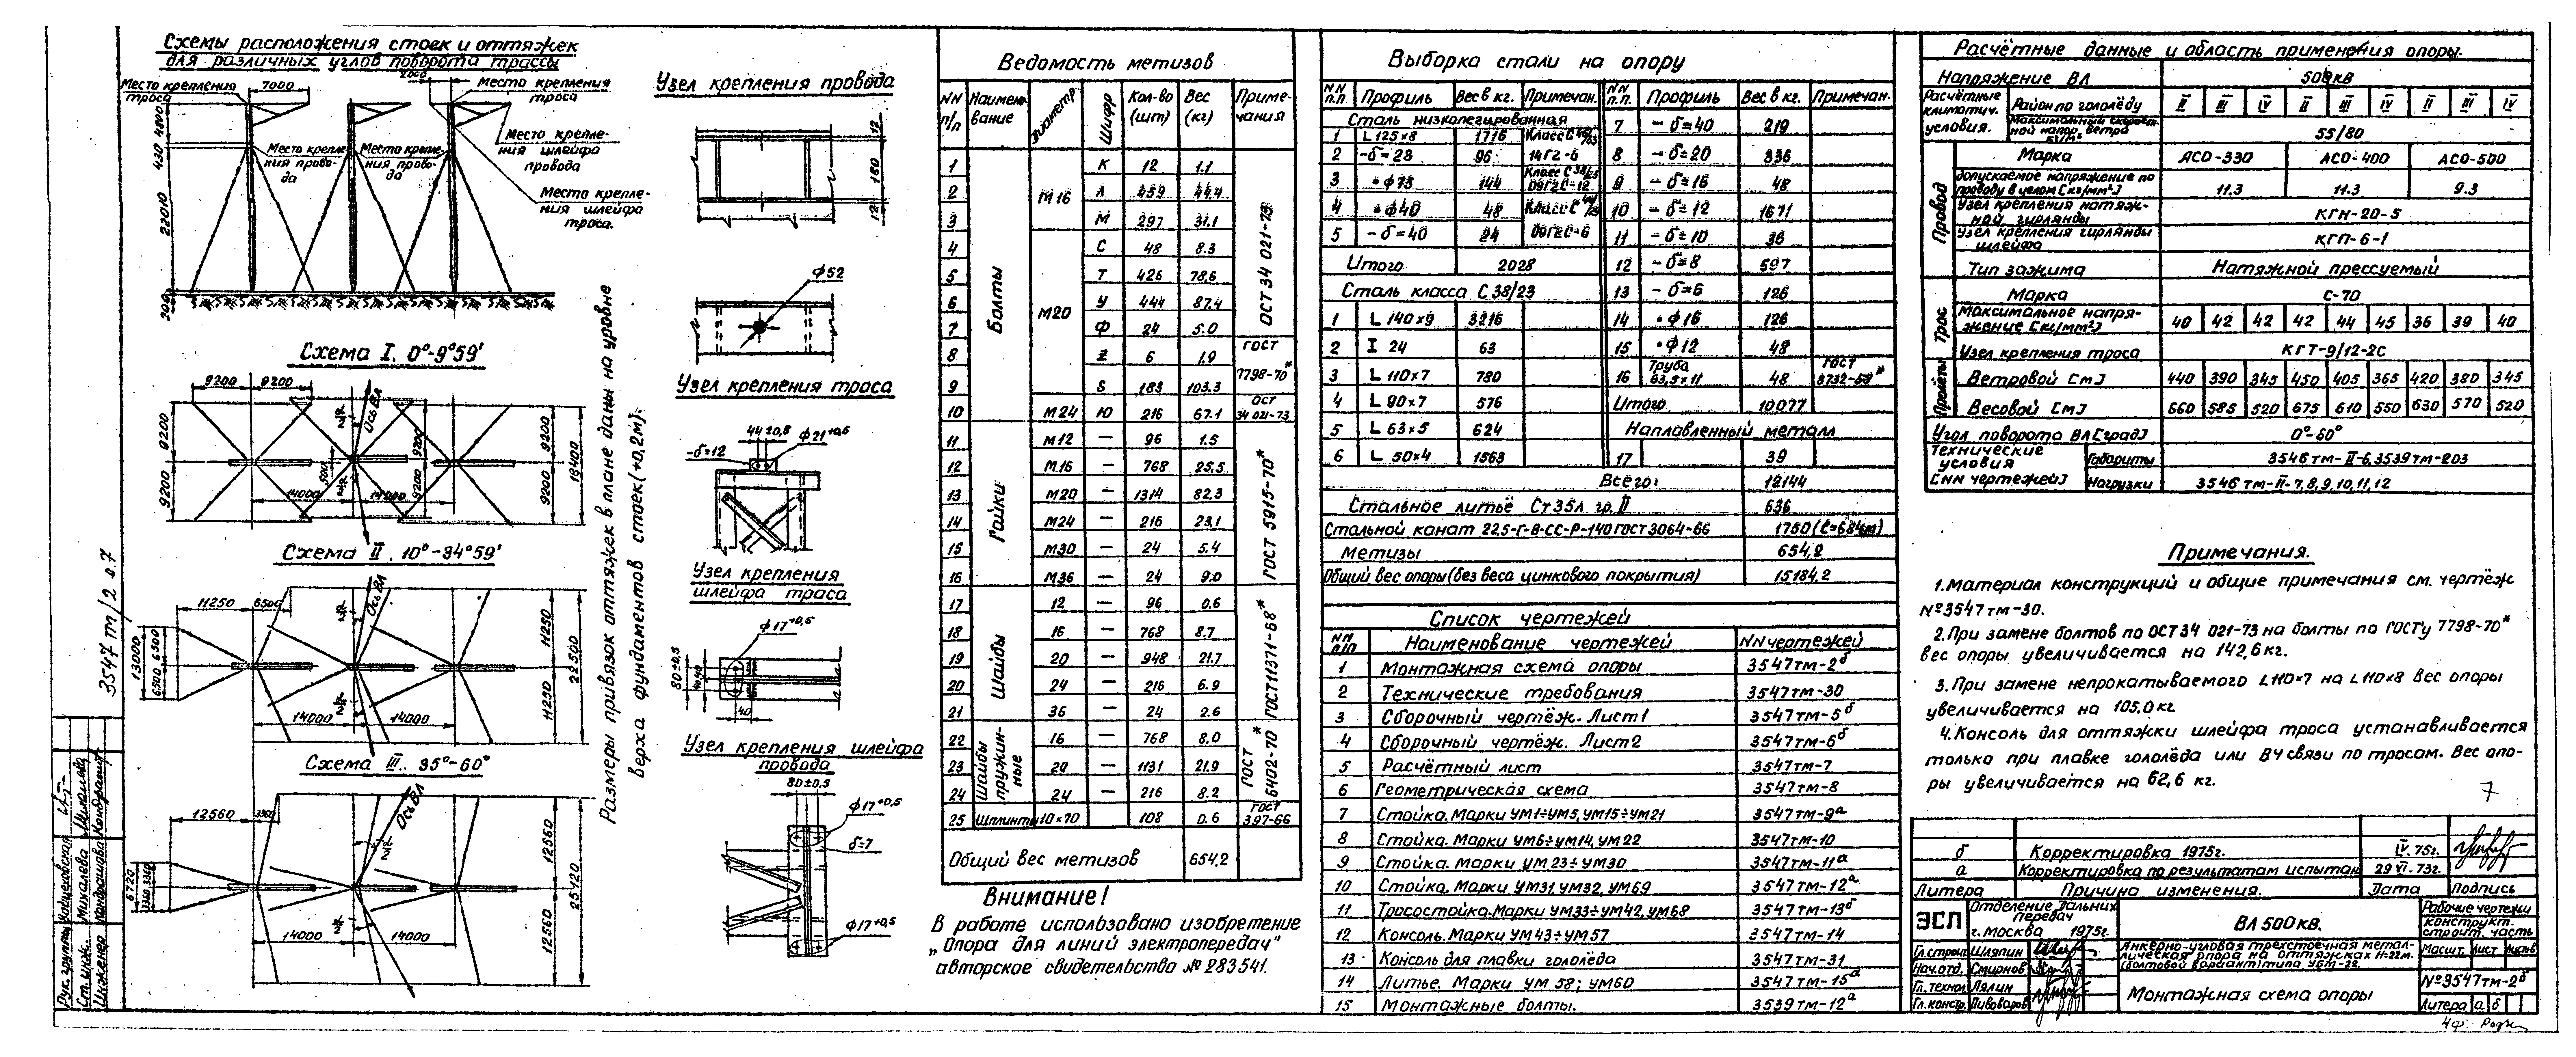 Схемы расположения стоек и оттяжек
для различных углов поворота трассы
Место крепления
троса
7000
2000
Место крепления
троса
Место крепле-
ния шлейфа
провода
Место крепле-
ния прово-
да
Место крепле-
ния прово-
да
Место крепле-
ния шлейфа
троса.
4800
430
22010
200
Схема I. 0°-9°59'
9200 9200
Ось ВЛ
9200
9200
9200
9200
9200
9200
18400
14000 14000
Схема II. 10°-34°59'
11250 6500
Ось ВЛ
13000
6500 6500
11250
11250
22500
14000 14000
Схема III. 35°-60°
12560 3360
Ось ВЛ
6720
3360 3360
12560
12560
25120
14000 14000
Размеры привязок оттяжек в плане даны на уровне
верха фундаментов стоек (+0,2м).
3547 тм/2 л.7
Рук. группы
Ст. инж. Михалева
Инженер Кондрашова
Узел крепления провода
12
180
12
ф52
Узел крепления троса
44±0,5
ф21+0,5
-δ=12
Узел крепления
шлейфа траса
ф17+0,5
80±0,5
40 40
40
Узел крепления шлейфа
провода
80±0,5
ф17+0,5
δ=7
ф17+0,5
Ведомость метизов
NN п/п Наимено-вание Диаметр Шифр Кол-во (шт) Вес (кг) Приме-чания
Болты
М16
М20
1 К 12 1.1
2 Л 459 44.4
3 М 297 31,1
4 С 48 8.3
5 Т 426 78,6
6 У 444 87.4
7 Ф 24 5.0
ОСТ 34 021-73
8 Z 6 1.9
9 S 183 103.3
ГОСТ
7798-70*
10 М24 Ю 216 67.1
ОСТ
34 021-73
Гайки
11 М12 — 96 1.5
12 М16 — 768 25,5
13 М20 — 1314 82,3
14 М24 — 216 23,1
15 М30 — 24 5.4
16 М36 — 24 9.0
ГОСТ 5915-70*
Шайбы
17 12 — 96 0.6
18 16 — 768 8.7
19 20 — 948 21.7
20 24 — 216 6.9
21 36 — 24 2.6
ГОСТ 11371-68*
Шайбы
пружин-
ные
22 16 — 768 8,0
23 20 — 1131 21.9
24 24 — 216 8.2
ГОСТ
6402-70*
25 Шплинты 10×70 108 0.6
ГОСТ
397-66
Общий вес метизов 654,2
Внимание!
В работе использовано изобретение
„Опора для линий электропередач"
авторское свидетельство № 283541.
Выборка стали на опору
NN п.п. Профиль Вес в кг. Примечан. NN п.п. Профиль Вес в кг. Примечан.
Сталь низколегированная
1 L 125×8 1716
2 -δ=23 96 14Г2-6
3 •ф75 144
4 •ф40 48
5 -δ=40 24
Итого 2028
Сталь класса С 38/23
1 L 140×9 3216
2 I 24 63
3 L 110×7 780
4 L 90×7 576
5 L 63×5 624
6 L 50×4 1563
7 -δ=40 219
8 -δ=20 336
9 -δ=16 48
10 -δ=12 1671
11 -δ=10 36
12 -δ=8 597
13 -δ=6 126
14 •ф16 126
15 •ф12 48
16 Труба 63,5×11 48 ГОСТ 8732-58*
Итого 10077
Наплавленный металл
17 39
Всего: 12144
Стальное литьё Ст 35л гр. II 636
Стальной канат 22,5-Г-В-СС-Р-140 ГОСТ 3064-66 1750 (ℓ=684м)
Метизы 654,2
Общий вес опоры (без веса цинкового покрытия) 15184,2
Список чертежей
NN п/п Наименование чертежей NN чертежей
1 Монтажная схема опоры 3547тм-2б
2 Технические требования 3547тм-30
3 Сборочный чертёж. Лист 1 3547тм-5б
4 Сборочный чертёж. Лист 2 3547тм-6б
5 Расчётный лист 3547тм-7
6 Геометрическая схема 3547тм-8
7 Стойка. Марки УМ1÷УМ5, УМ15÷УМ21 3547тм-9а
8 Стойка. Марки УМ6÷УМ14, УМ22 3547тм-10
9 Стойка. Марки УМ23÷УМ30 3547тм-11а
10 Стойка. Марки УМ31, УМ32, УМ69 3547тм-12а
11 Тросостойка. Марки УМ33÷УМ42, УМ68 3547тм-13б
12 Консоль. Марки УМ43÷УМ57 2547тм-14
13 Консоль для плавки гололёда 3547тм-31
14 Литье. Марки УМ58; УМ60 3547тм-15а
15 Монтажные болты. 3539тм-12а
Расчётные данные и область применения опоры.
Напряжение ВЛ 500кв
Расчётные климатич. условия.
Район по гололёду II III IV II III IV II III IV
Максимальный скорост-ной напор ветра кг/м² 55/80
Провод
Марка АСО-330 АСО-400 АСО-500
Допускаемое напряжение по проводу в целом [кг/мм²] 11.3 11.3 9.3
Узел крепления натяж-ной гирлянды КГН-20-5
Узел крепления гирлянды шлейфа КГП-6-1
Тип зажима Натяжной прессуемый
Трос
Марка С-70
Максимальное напря-жение [кг/мм²] 40 42 42 42 44 45 36 39 40
Узел крепления троса КГТ-9/12-2С
Пролёты
Ветровой [м] 440 390 345 450 405 365 420 380 345
Весовой [м] 660 585 520 675 610 550 630 570 520
Угол поворота ВЛ [град] 0°-60°
Технические условия [NN чертежей]
Габариты 3546тм-II-6, 3539тм-203
Нагрузки 3546тм-II-7,8,9,10,11,12
Примечания.
1. Материал конструкций и общие примечания см. чертёж
№3547тм-30.
2. При замене болтов по ОСТ 34 021-73 на болты по ГОСТу 7798-70*
вес опоры увеличивается на 142,6кг.
3. При замене непрокатываемого L110×7 на L110×8 вес опоры
увеличивается на 105.0кг.
4. Консоль для оттяжки шлейфа троса устанавливается
только при плавке гололёда или ВЧ связи по тросам. Вес опо-
ры увеличивается на 62,6 кг.
7
б Корректировка 1975г. IV.75г.
а Корректировка по результатам испытан 29 VI-73г.
Литера Причина изменения. Дата Подпись
ЭСП
Отделение Дальних
передач
г. Москва 1975г.
ВЛ 500кв.
Рабочие чертежи
Конструкт.
строит. часть
Гл. строит. Шляпин
Нач. отд. Смирнов
Гл. технол. Лялин
Гл. констр. Пивоваров
Анкерно-угловая трёхстоечная метал-
лическая опора на оттяжках Н=22м.
(болтовой вариант) типа УБМ-22.
Масшт. Лист Листов
Монтажная схема опоры
№3547тм-2б
Литера а б